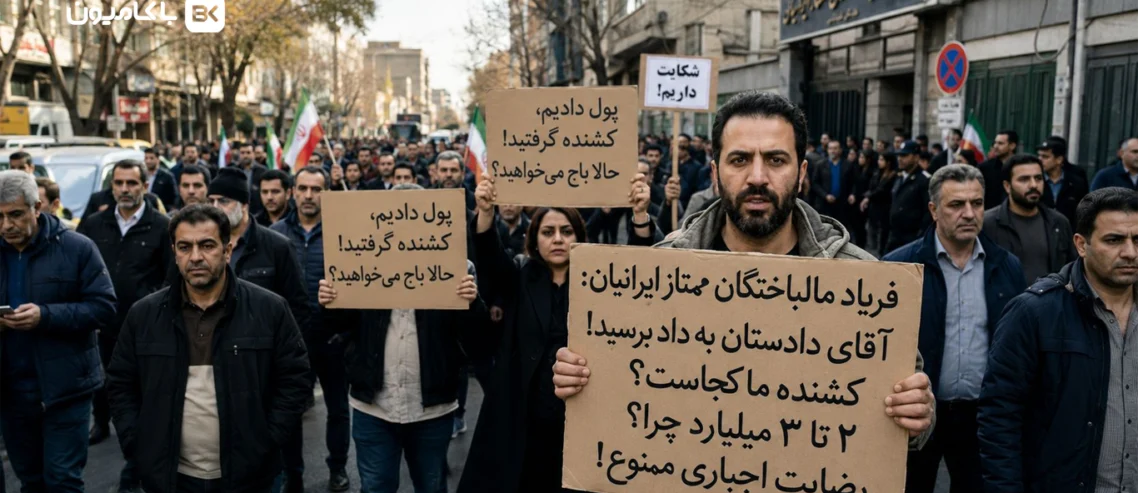 باکامیون
BK
شکایت
داریم!
پول دادیم،
کشنده گرفتید!
حالا باج می‌خواهید؟
پول دادیم،
کشنده گرفتید!
حالا باج می‌خواهید؟
فریاد مالباختگان ممتاز ایرانیان:
آقای دادستان به داد برسید!
کشنده ما کجاست؟
۲ تا ۳ میلیارد چرا؟
رضایت اجباری ممنوع!